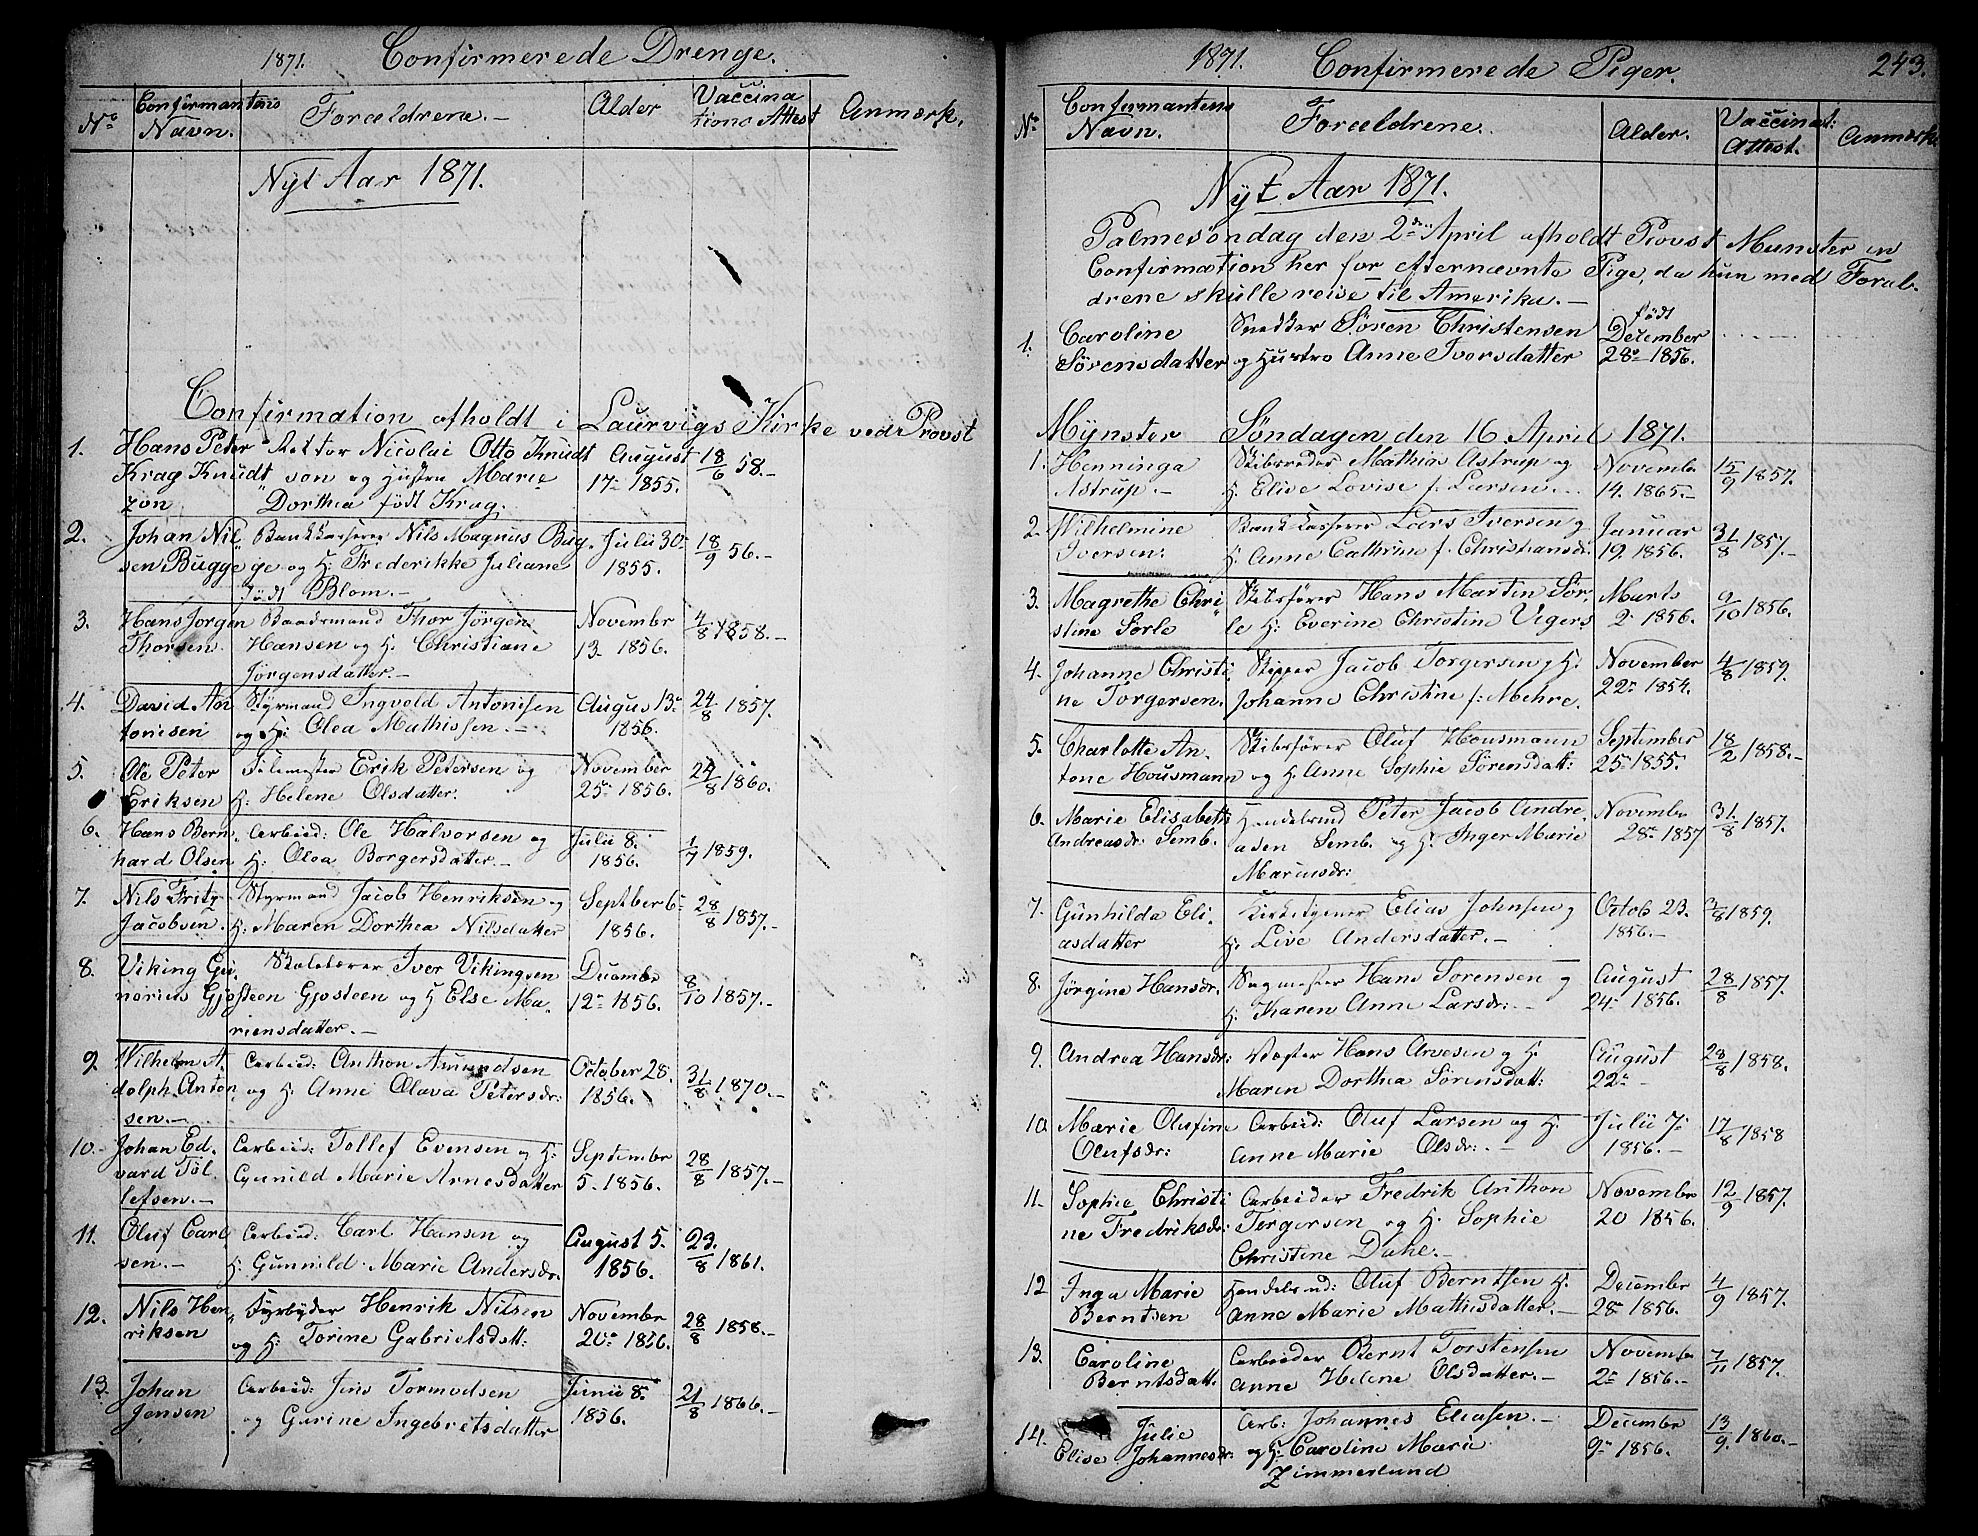 1871. Confirmerede Drenge.
No Confirmantens Navn. Forældrene.- Alder Vaccinations Attest Anmærk.
Nyt Aar 1871.
Confirmation afholdt i Laurvigs Kirke ved Provst
1. Hans Peter Rektor Nicolai Otto Knudt August 18/6 58.-
Krag Knudt son og Hustru Marie 17- 1855.
zon Dorthea født Krag.
2. Johan Nil Bankkasserer Nils Magnus Bug, Julii 30- 18/9 56.-
sen Bugge ge og H: Frederikke Juliane 1855.
født Blom.-
3. Hans Jorgen Baadsmand Thor Jørgen November 4/8 1858.-
Thorsen. Hansen og H. Christiane 13- 1856.
Jørgensdatter.-
4. David An Styrmand Ingvold Antonisen Augus 13- 24/8 1857.
tonisen og H: Olea Mathissen.- 1856.
5. Ole Peter Erik Petersen og November 24/8 1860.
Eriksen H: Helene Olsdatter. 25- 1856.
6. Hans Bern, Arbeid: Ole Halvorsen og Julii 8. 1/7 1859.
hard Olsen H: Olea Borgersdatter.- 1856.
7. Nils Fritz Styrmand Jacob Henriksen og Septber 6- 28/8 1857.-
Jacobsen. H: Maren Dorthea Nilsdatter 1856.
8. Viking Gu, Skolelærer Iver Vikingsen Decembr 8/10 1857.-
narius Gjøsteen Gjøsteen og H Else Ma, 12- 1856.
riensdatter.-
9. Wilhelm A, Arbeid: Anthon Amundsen October 28. 31/8 1870.-
dolph Anton og H: Anne Olava Petersdr: 1856.
sen.-
10.- Johan Ed, Arbeid: Tollef Evensen og H: Septembr 28/8 1857.-
vard Tol, Gunild Marie Arnesdatter 5. 1856.
lefsen.-
11. Oluf Carl Arbeid: Carl Hansen og August 5. 23/8 1861.
sen.- H: Gunnild Marie Andersdr. 1856.
12. Nils Hen Fyrbøder Henrik Nilsen November 28/8 1858.-
riksen og H: Torine Gabrielsdatt: 20- 1856.
13. Johan Arbeid: Jens Tormodsen Junii 8. 21/8 1866.-
Jensen og Gurine Ingebretsdatter 1856.
1871. Confirmerede Piger. 243.
No Confirmantens Navn. Forældrene. Alder. Vaccinat: Attest. Anmærk.
Nyt Aar 1871.
Palmesøndag den 2den April afholdt Provst Munster en
Confirmation her for efternævnte Pige, da hun med Foræl-
drene skulle reise til Amerika.-
1. Caroline Snedker Søren Christensen født December
Sørensdatter og Hustro Anne Iversdatter 28- 1856.
Mynster Søndagen den 16 April 1871.
1. Henninga Skibsreder Mathias Astrup og Novembr 15/9 1857.
Astrup.- H. Elise Lovise f. Larsen.- 14. 1865.-
2. Wilhelmine Bankkasserer Lars Iversen og Januar 31/8 1857.-
Iversen. H. Anne Cathrine f. Christiansdr. 19. 1856.
3. Magrethe Chri Skibsfører Hans Martin Sør, Marts 9/10 1856.
stine Sørle le H: Everine Christine Vigers 2- 1856.
4. Johanne Christi Skipper Jacob Torgersen og H: November 4/8 1859.
ne Torgersen. Johanne Christine f: Mehre. 22- 1854.
5. Charlotte An, Skibsfører Oluf Housmann September 18/2 1858.-
tone Housmann og H. Anne Sophie Sørensdatt: 25- 1855.
6. Marie Elisabeth Handelsmd Peter Jacob Andre, Novembr 31/8 1857.
Andreasdr: Semb. asen Semb. og H. Inger Marie 28- 1857
Mariusdr:
7. Gunhilda Eli, Kirketjener Elias Johnsen og Octob 23. 1859.
asdatter H. Live Andersdatter.- 1856.-
8. Jørgine Hansdr. Sagmester Hans Sørensen og August 28/8 1857.
H. Karen Anne Larsdr:- 24- 1856.
9. Andrea Hansdr: Hans Arvesen og H: August 28/8 1858.
Maren Dorthea Sørensdatt: 22- -
10. Marie Olufine Arbeid: Oluf Larsen og H: Julii 7- 17/8 1858
Olufsdr: Anne Marie Olsdr:.- 1856.-
11. Sophie Christi Arbeider Fredrik Anthon Novembr 12/9 1857.
ne Fredriksdr. Torgersen og H. Sophie 20 1856.
Christine Dahl.-
12 Inga Marie Handelsmd: Oluf Berntsen H: Decembr 4/9 1857.
Berntsen Anne Marie Mathisdatter.- 28- 1856.
13. Caroline Arbeider Bernt Torstensen Novembr 7/11 1857.
Berntsdatt. Anne Helene Olsdatter.- 2- 1856.-
14. Julie Arb: Johannes Eliasen.- Decembr 13/9. 1860.-
Elise Johannesdr. og H: Caroline Marie 9- 1856.
Zimmerlund